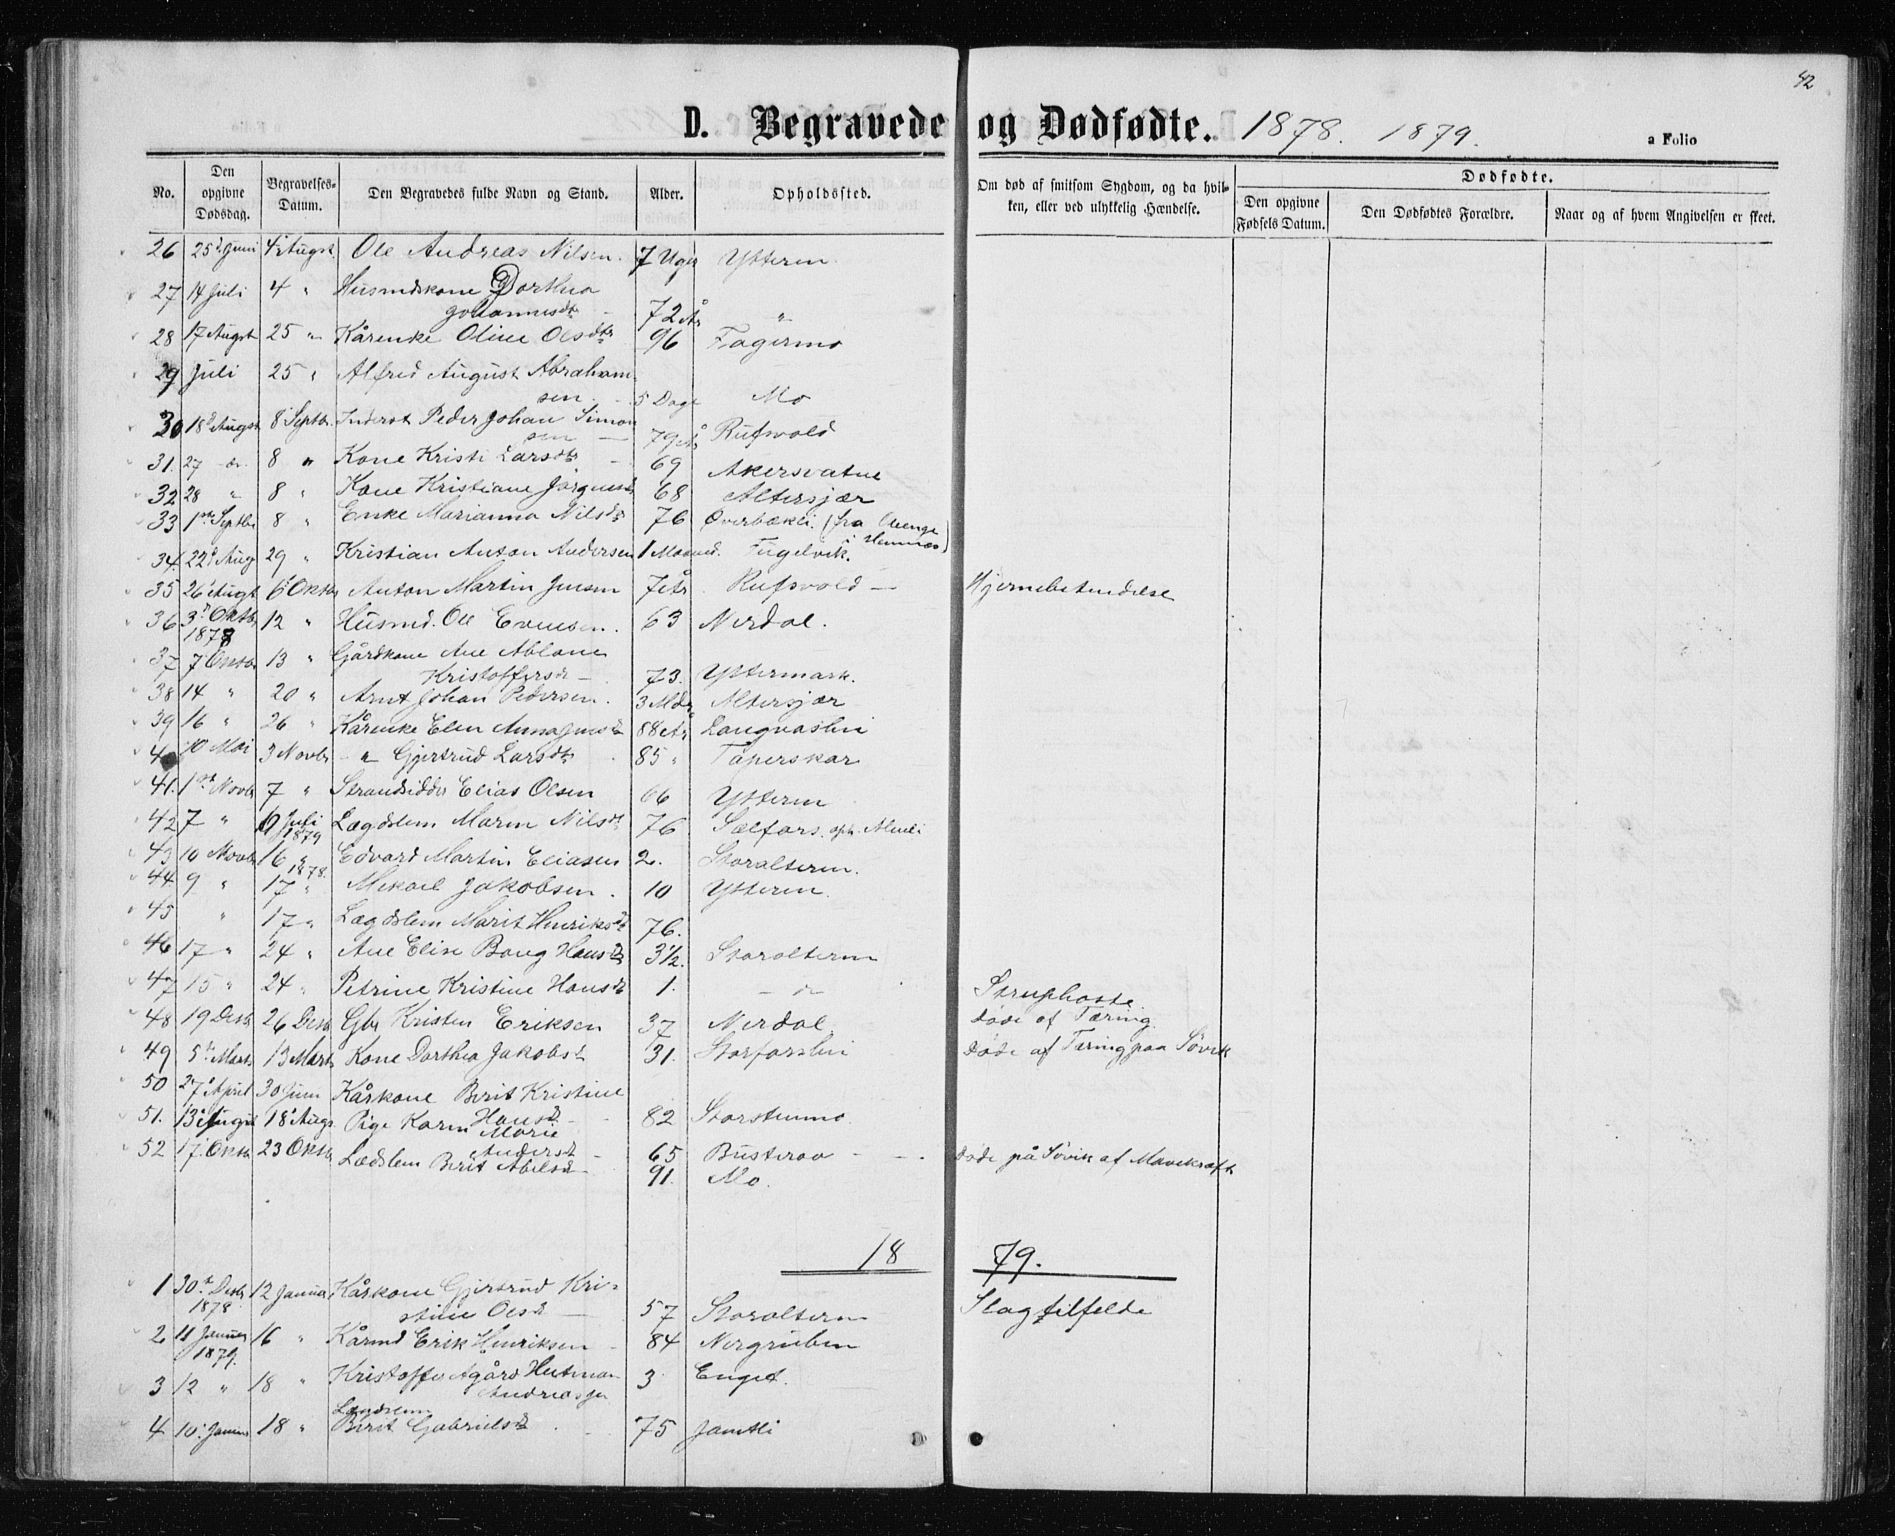 42
D. Begravede og Dødfødte. 1878. 1879. a Folio
No. Den opgivne Dødsdag. Begravelses-Datum. Den Begravedes fulde Navn og Stand. Alder. Opholdssted. Om død af smitsom Sygdom, og da hvilken, eller ved ulykkelig Hændelse. Dødfødte. Den opgivne Fødsels Datum. Den Dødfødtes Forældre. Naar og af hvem Angivelsen er skeet.
26 25d Juni 4d Augst Ole Andreas Nilsen. 7 Uger Ytteren
27 14 Juli 4 " Husmdskone Dorthea
Johannesdtr 72 År "
28 17 Augst 25 " Kårenke Oline Olsdtr 96 Fagermo
29 Juli 25 " Alfred August Abraham
sen. 5 Dage Mo
30 18d Augst 8 Septbr Inderst Peder Johan Simon
sen — 79 År Rufsvold
31. 27 do. 8 " Kone Kristi Larsdtr 69 Akersvatne
32 28 " 8 " Kone Kristiane Jørgensdr 68 Altersjær
33 1ste Septbr 8 " Enke Marianna Nilsdtr 76 Øverbækli. (fra
Hemnes)
34. 22d Aug 29 " Kristian Anton Andersen 1 Maaned. Fugelvik.
35 26d Augst 6d Oktbr Anton Martin Jensen 7 År Rufsvold — Hjernebetendelse
36 3d Oktbr 12 " Husmd. Ole Evensen. 63 Nerdal.
1878
37 7 Oktbr 13 " Gårdkone Ane Ablone
Kristoffersdr — 73. Yttermark.
38 14 " 20 " Arnt Johan Pedersen. 3 Mdr. Altersjær
39 16 " 26 " Kårenke Elen Anna Jensdr 88 År Langvaslei
40 10 Mai 3 Novbr " Gjertrud Larsdtr 85 " Tåperskar
41. 1st Novbr 7 " Strandsidder Elias Olsen 66 Ytteren
42 7 " 6 Juli 1879 Lægdslem Maren Nilsdtr 76 Selfors. oph. Almli
43 10 Novbr 16 " 1878. Edvard Martin Eliasen 2. Storalteren.
44 9 " 17 " Mikael Jakobsen. 10 Ytteren.
45 " 17 " Lægdslem Marit Henriksdtr 76.
46 17 " 24 " Ane Elise Bang Hansdtr 3½. Storalteren
47 15 " 24 " Petrine Kristine Hansdtr 1. — do Struphoste.
48 19 Desbr 26 Desbr Gbr Kristen Eriksen 37 Nerdal. døde af Tæring.
49 5te Marts 13 Marts Kone Dorthea Jakobsd 31. Storforshei døde af Tæring paa Søvik
50 27d April 30 Juni Kårkone Berit Kristine
Hansd — 82 Storstenmo.
51. 13d August 18d Augs. Pige Karen Marie
Andersd — 65 Busterov — døde på Søvik af Mavekræft
52 17. Oktbr 23 Oktbr Lædslem Berit Abelsd — 91. Mo.
18 79.
1 30st Desbr 12 Januar Kårkone Gjertrud Kri-
1878. stine Olsd — 57 Storalteren Slagtilfelde
2 11 Januar 16 " Kårmd Erik Henriksen — 84 Nergruben
1879.
3 12 " 18 " Kristoffer Agård Hutman
Andreasen 3 Enget.
4 10. Januar 18 " Lægdslem
Berit Gabrielsdtr. 75 Jamtli